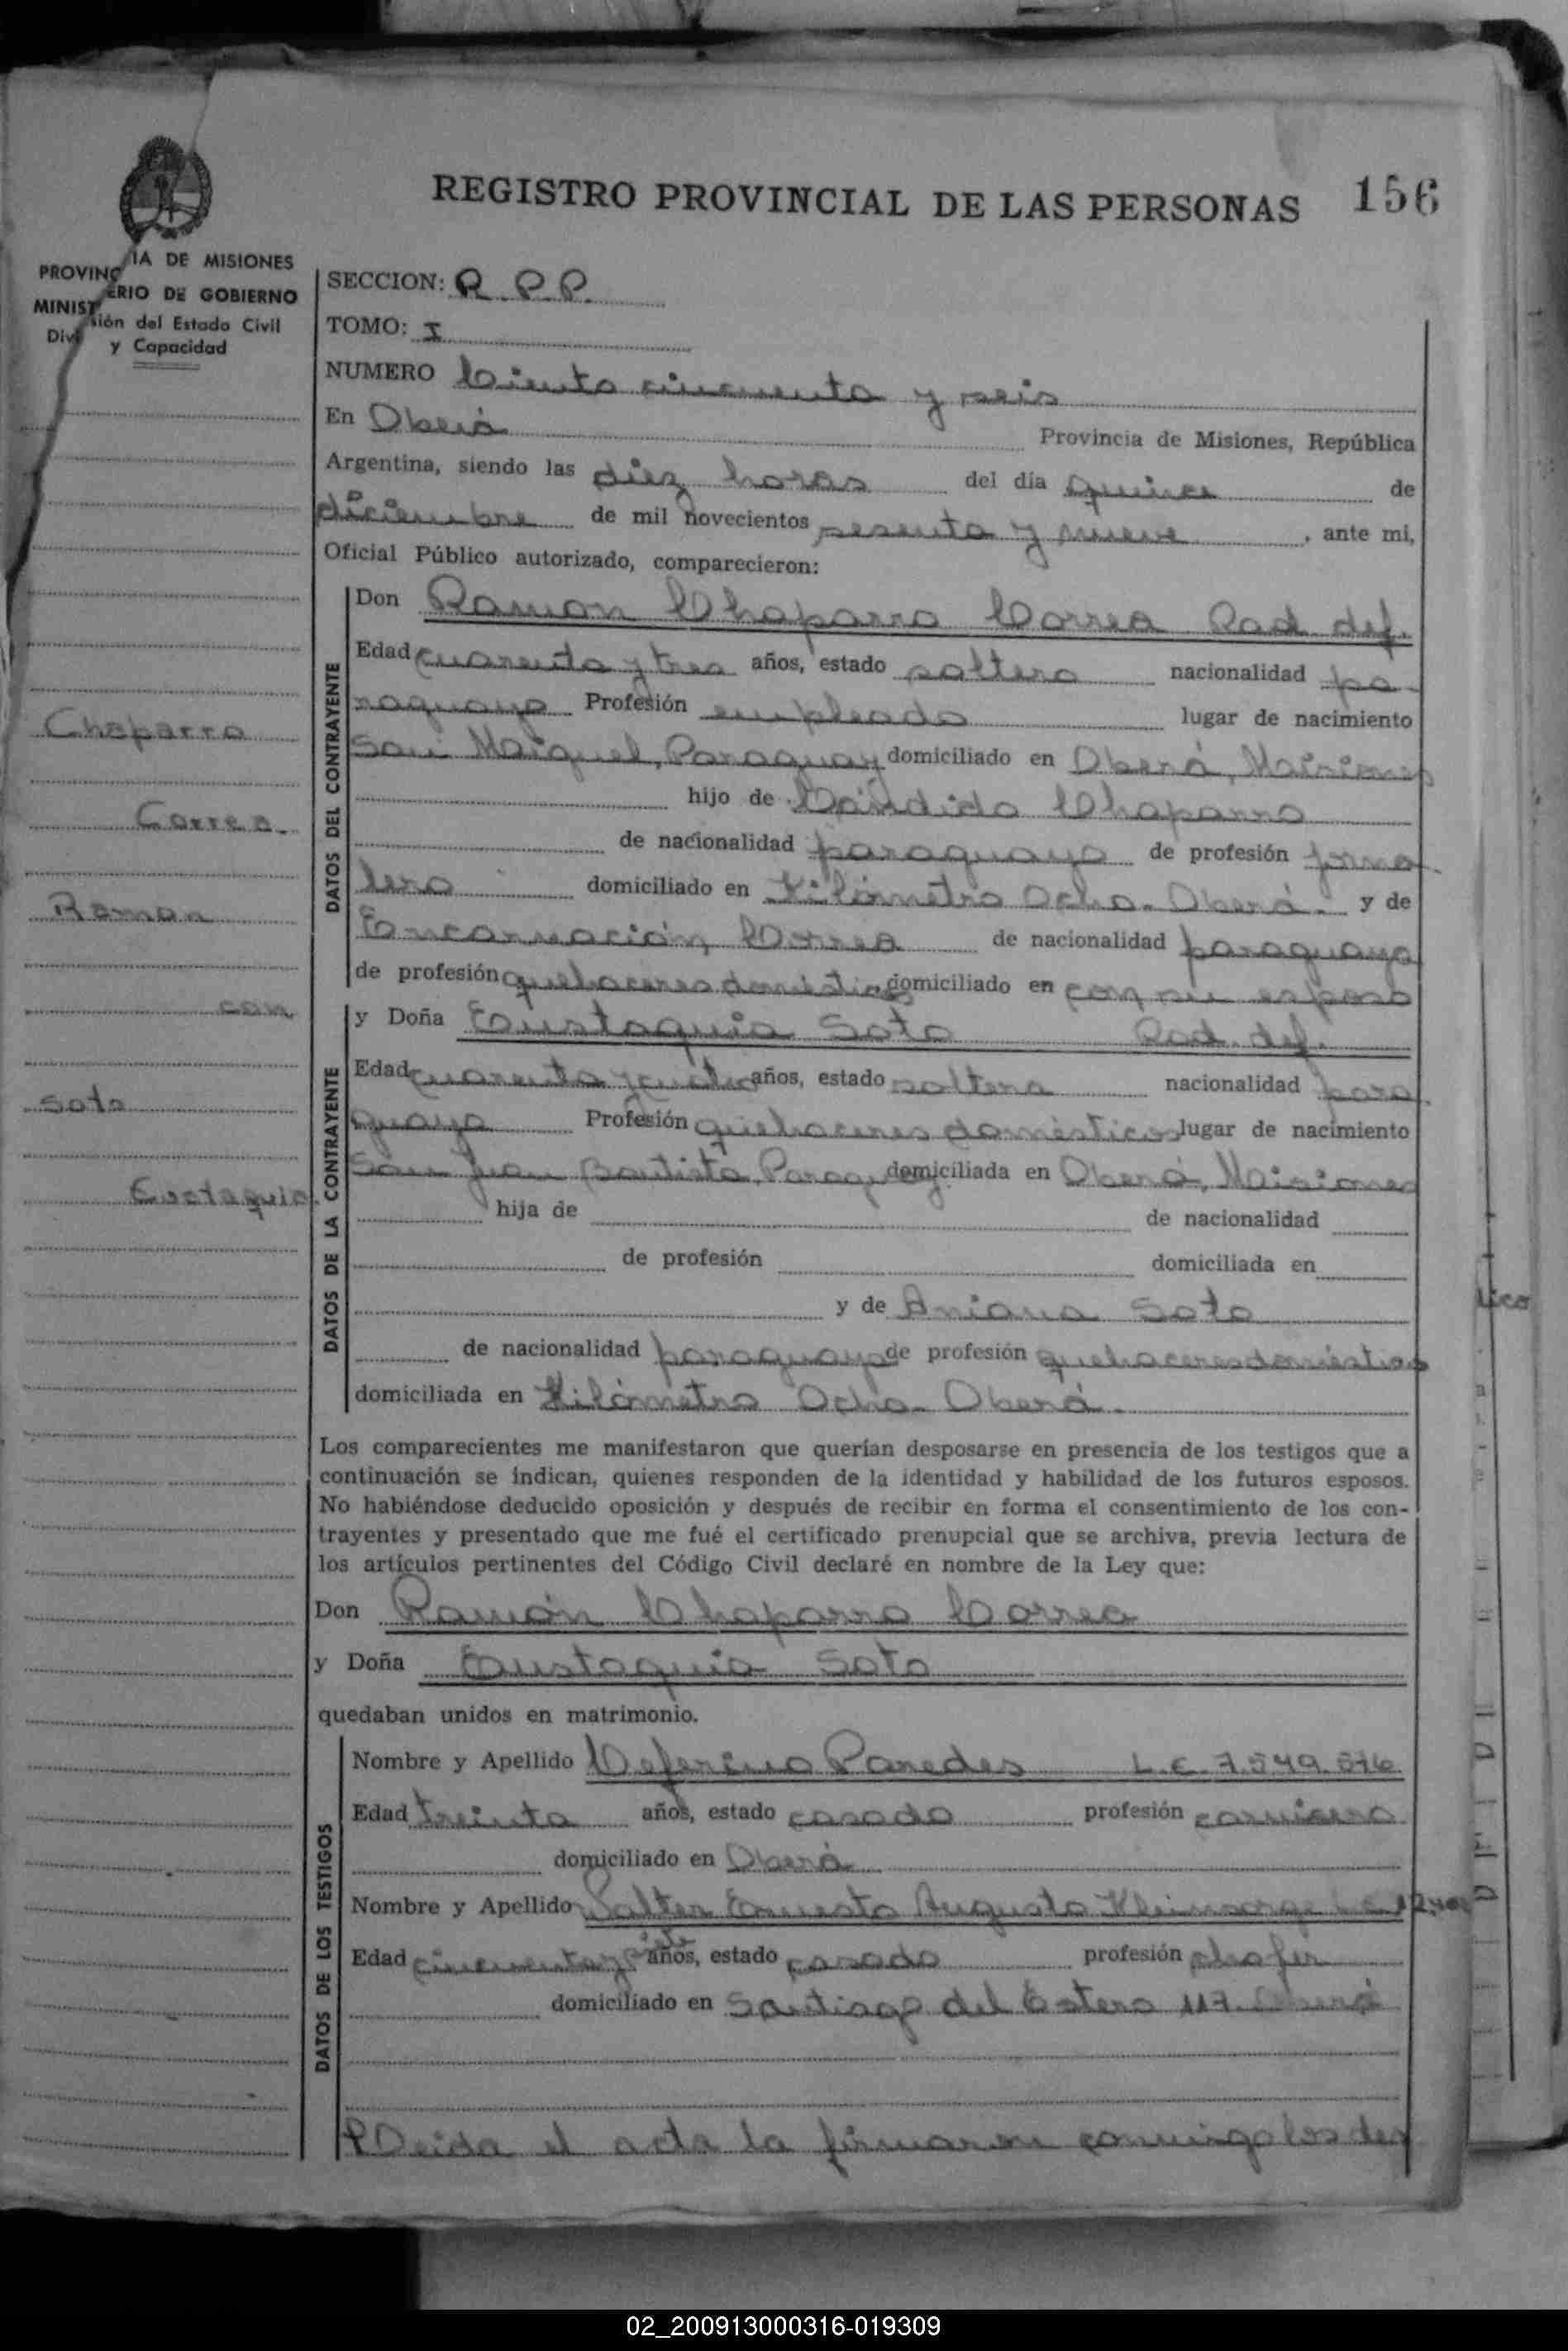 REGISTRO PROVINCIAL DE LAS PERSONAS 156
PROVINCIA DE MISIONES
MINISTERIO DE GOBIERNO
División del Estado Civil
y Capacidad
SECCION: R.P.P.
TOMO: I
NUMERO Ciento cincuenta y seis
En Oberá Provincia de Misiones, República
Argentina, siendo las diez horas del día quince de
diciembre de mil novecientos sesenta y nueve, ante mi,
Oficial Público autorizado, comparecieron:
DATOS DEL CONTRAYENTE
Don Ramon Chaparro Correa Rad. def.
Edad cuarenta y tres años, estado soltero nacionalidad pa-
raguayo Profesión empleado lugar de nacimiento
San Miguel, Paraguay domiciliado en Oberá, Misiones
hijo de Cándido Chaparro
de nacionalidad paraguayo de profesión jorna-
lero domiciliado en Kilómetro Ocho. Oberá. y de
Encarnación Correa de nacionalidad paraguaya
de profesión quehaceres domésticos domiciliado en con su esposo
Chaparro
Correa
Ramon
con
Soto
Eustaquia
DATOS DE LA CONTRAYENTE
y Doña Eustaquia Soto Rad. def.
Edad cuarenta y cuatro años, estado soltera nacionalidad para-
guaya Profesión quehaceres domésticos lugar de nacimiento
San Juan Bautista, Paraguay domiciliada en Oberá, Misiones
hija de de nacionalidad
de profesión domiciliada en
y de Aniana Soto
de nacionalidad paraguaya de profesión quehaceres domésticos
domiciliada en Kilómetro Ocho. Oberá.
Los comparecientes me manifestaron que querían desposarse en presencia de los testigos que a
continuación se indican, quienes responden de la identidad y habilidad de los futuros esposos.
No habiéndose deducido oposición y después de recibir en forma el consentimiento de los con-
trayentes y presentado que me fué el certificado prenupcial que se archiva, previa lectura de
los artículos pertinentes del Código Civil declaré en nombre de la Ley que:
Don Ramón Chaparro Correa
y Doña Eustaquia Soto
quedaban unidos en matrimonio.
DATOS DE LOS TESTIGOS
Nombre y Apellido Ceferino Paredes L.E. 7.549.576
Edad treinta años, estado casado profesión carnicero
domiciliado en Oberá
Nombre y Apellido Walter Ernesto Augusto Kleinsorge
Edad cincuenta y siete años, estado casado profesión chofer
domiciliado en Santiago del Estero 117. Oberá
Leida el acta la firmaron conmigo los des
02_200913000316-019309